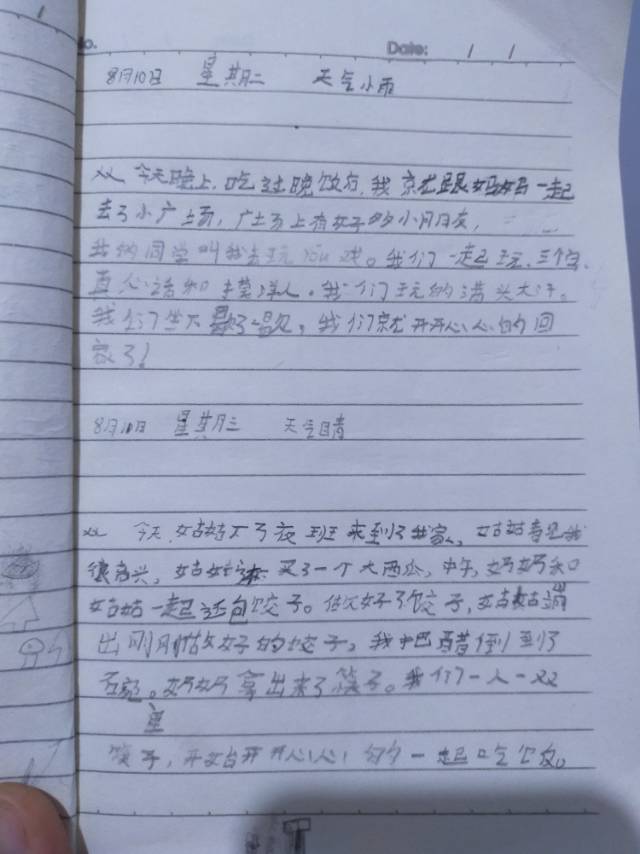 No. Date: / /
8月10日 星期二 天气小雨
今天晚上,吃过晚饭后,我就跟妈妈一起
去了小广场,广场上有好多小朋友,
我的同学叫我去玩游戏。我们一起玩三个字、
真心话和摸瞎人。我们玩的满头大汗。
我们坐下歇了歇,我们就开开心心的回
家了!
8月11日 星期三 天气晴
今天,姑姑下了夜班来到了我家,姑姑看见我
很高兴,姑姑买了一个大西瓜,中午,奶奶和
姑姑一起还包饺子。做好了饺子,姑姑端
出刚刚做好的饺子,我把醋倒到了
碗里。奶奶拿出来了筷子。我们一人一双
筷子,开始开开心心的一起吃饭。